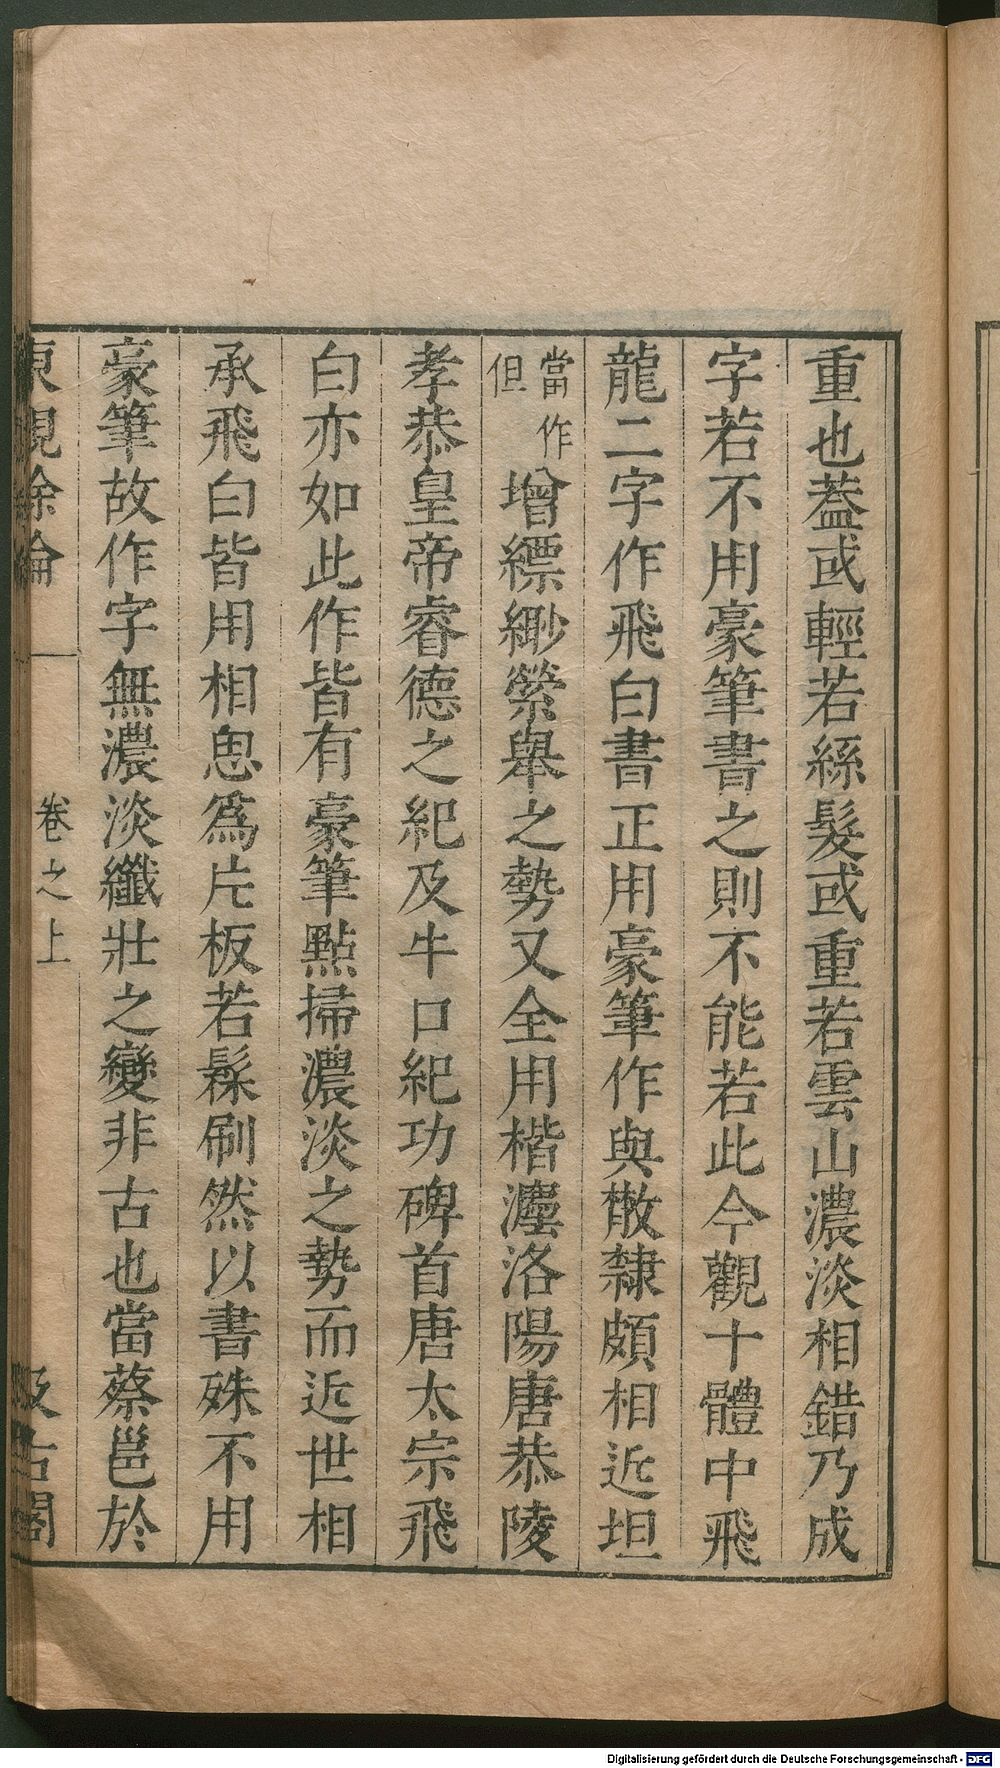 重也葢或輕若絲髮或重若雲山濃淡相錯乃成
字若不用豪筆書之則不能若此今觀十體中飛
龍二字作飛白書正用豪筆作與散隸頗相近坦
當作
但
增縹緲縈舉之勢又全用楷灋洛陽唐恭陵
孝恭皇帝睿德之紀及牛口紀功碑首唐太宗飛
白亦如此作皆有豪筆點掃濃淡之勢而近世相
承飛白皆用相思爲片板若髹刷然以書殊不用
豪筆故作字無濃淡纖壯之變非古也當蔡邕於
東觀餘論
卷之上
汲古閣
Digitalisierung gefördert durch die Deutsche Forschungsgemeinschaft - DFG